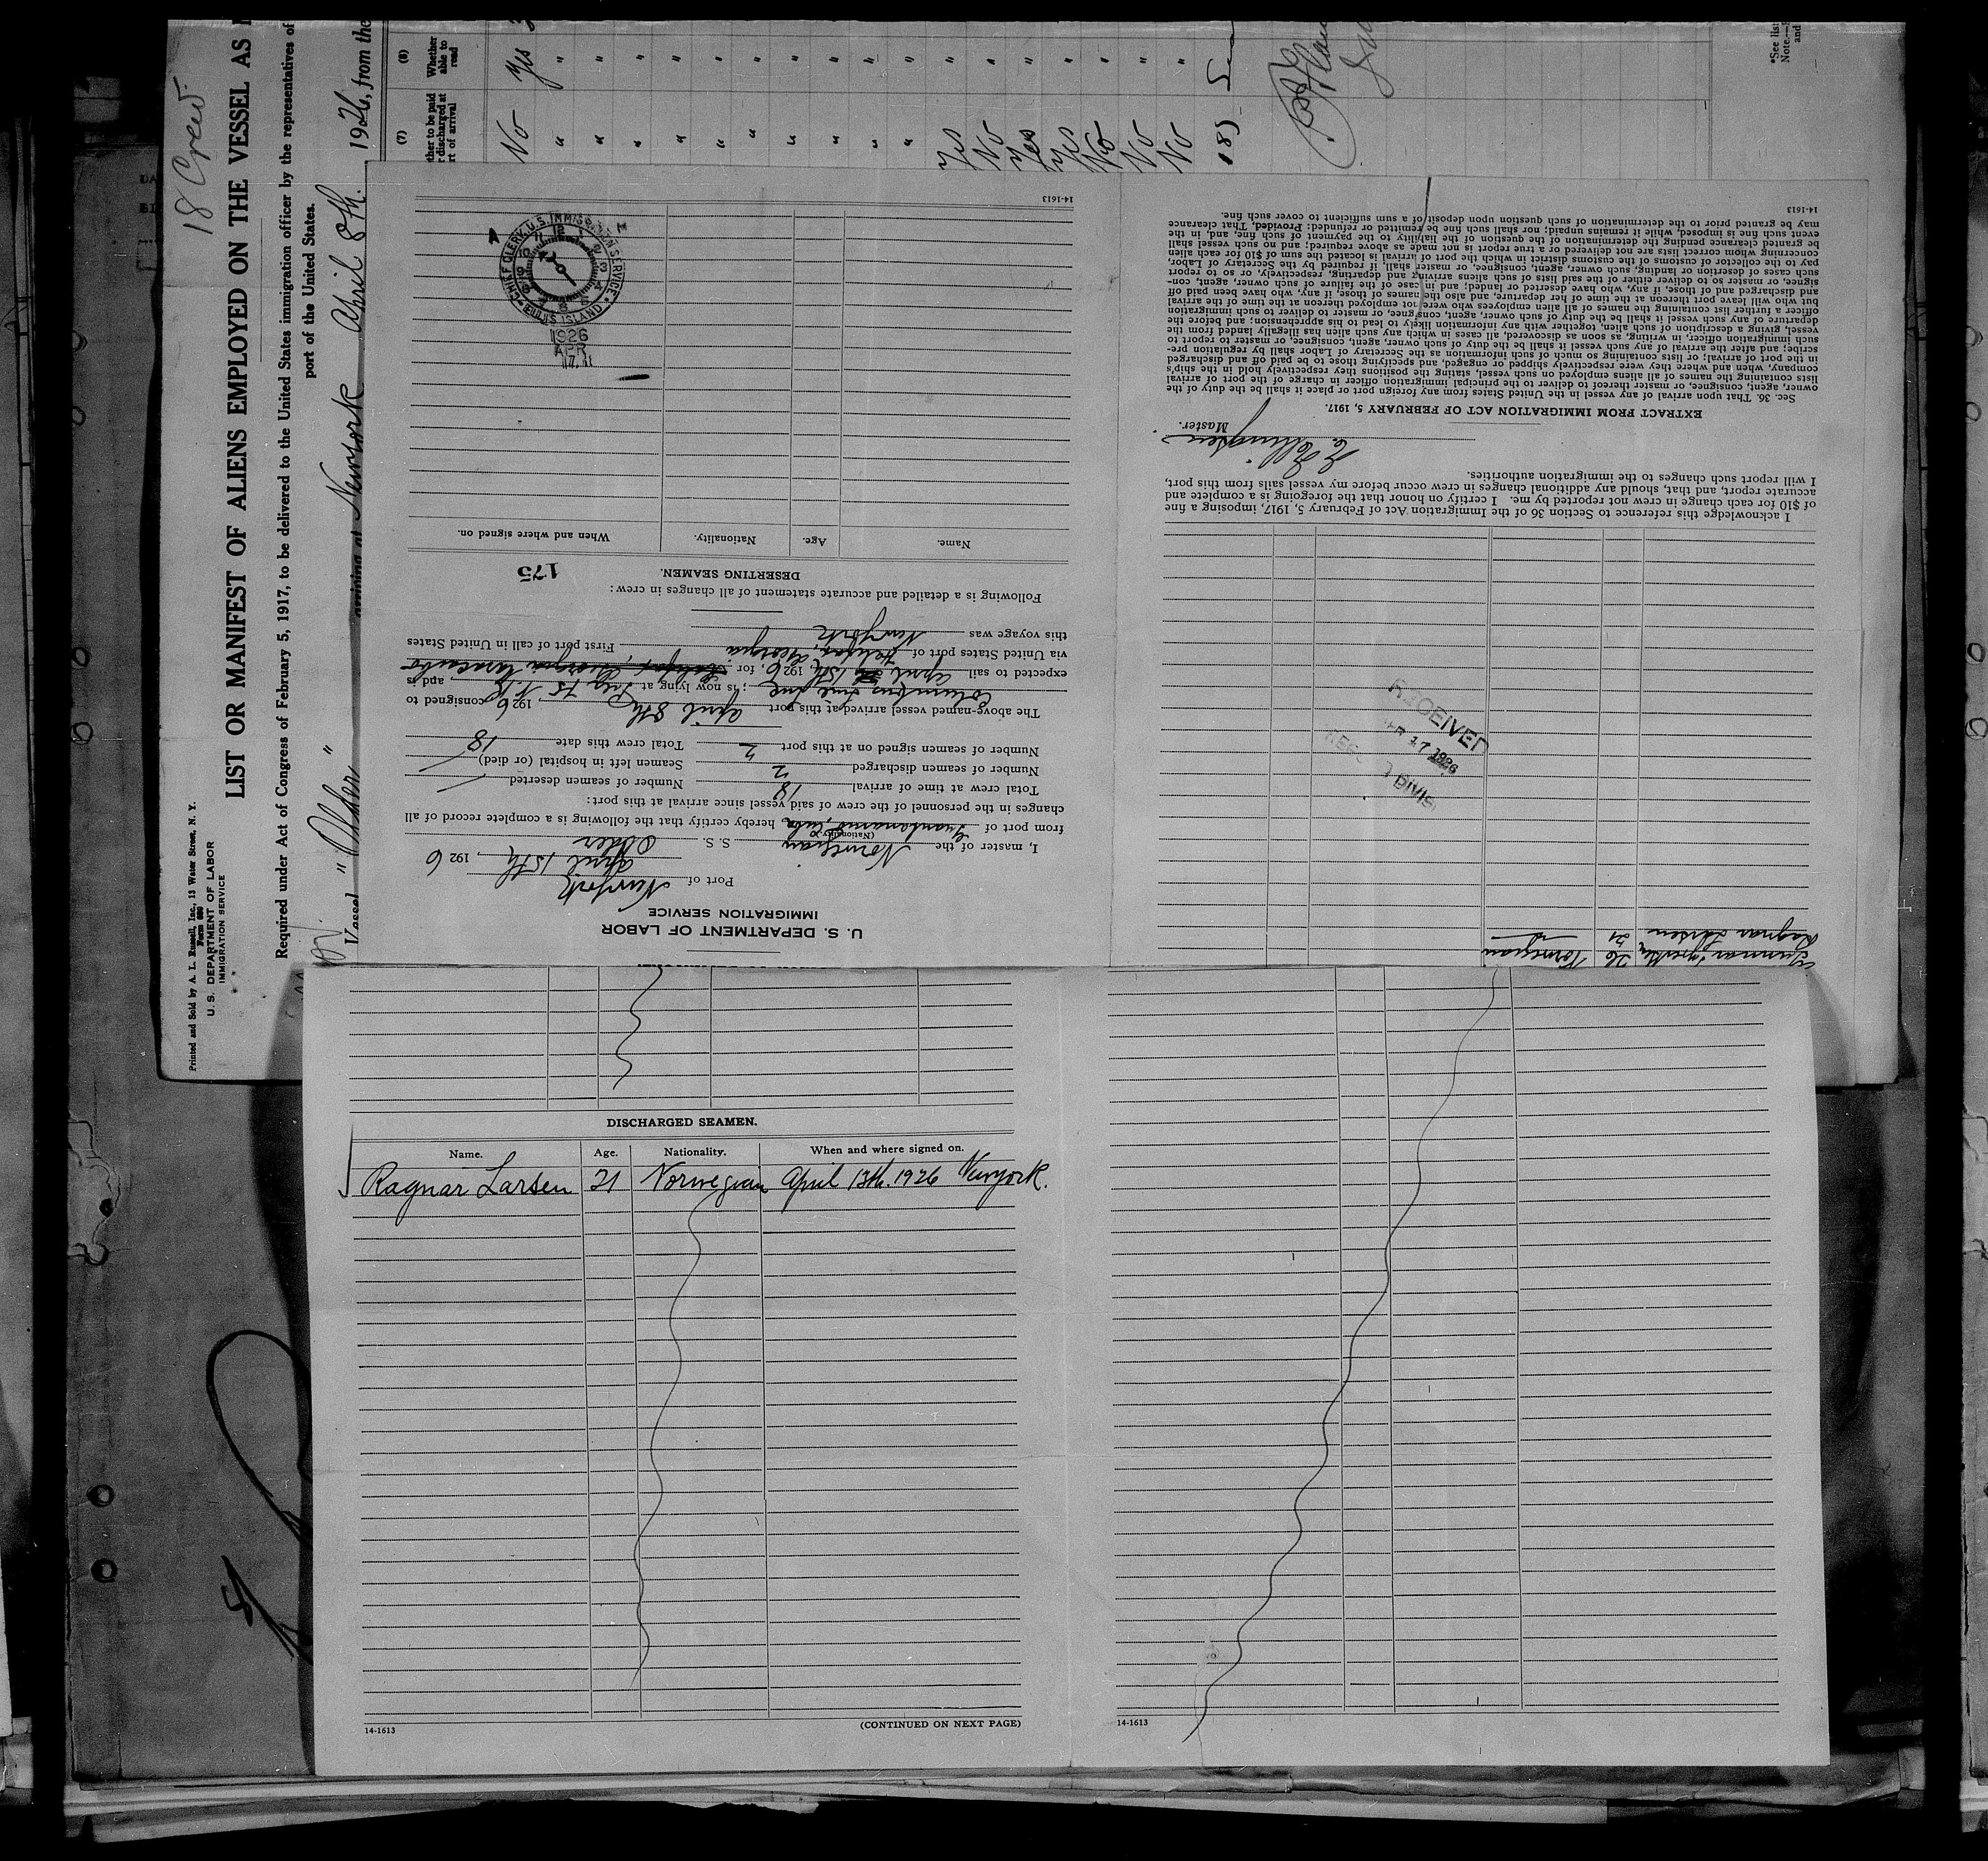 18 Crew.
Printed and Sold by A. L. Russell, Inc., 13 Water Street, N. Y.
Form 680
U. S. DEPARTMENT OF LABOR
IMMIGRATION SERVICE
LIST OR MANIFEST OF ALIENS EMPLOYED ON THE VESSEL AS
Required under Act of Congress of February 5, 1917, to be delivered to the United States immigration officer by the representatives of
port of the United States.
Vessel "Odder" arriving at Newyork April 8th. 1926, from the
(7) (8)
Whether able to read
No Yes
" "
" "
" "
" "
" "
" "
" "
" "
" "
" "
Yes "
No "
Yes "
Yes "
No "
No "
No "
*See list
Note.—
and
U. S. DEPARTMENT OF LABOR
IMMIGRATION SERVICE
Port of Newyork
April 15th, 1926
I, master of the Norwegian S. S. Odder
(Nationality.)
from port of Guantanamo, Cuba, hereby certify that the following is a complete record of all
changes in the personnel of the crew of said vessel since arrival at this port:
Total crew at time of arrival 18 Number of seamen deserted /
Number of seamen discharged 2 Seamen left in hospital (or died) /
Number of seamen signed on at this port 2 Total crew this date 18
The above-named vessel arrived at this port April 8th, 1926 consigned to
Columbus Line Inc; is now lying at and is
expected to sail April 15th, 1926, for
via United States port of Georgia First port of call in United States
this voyage was Newyork
Following is a detailed and accurate statement of all changes in crew:
DESERTING SEAMEN. 175
Name. Age. Nationality. When and where signed on.
CHIEF CLERK, U.S. IMMIGRATION SERVICE
ELLIS ISLAND
A M
1926
APR
14-1613
Gunnar 26 Norwegian
Ragnar Larsen 21
RECEIVED
APR 17 1926
I acknowledge this reference to Section 36 of the Immigration Act of February 5, 1917, imposing a fine
of $10 for each change in crew not reported by me. I certify on honor that the foregoing is a complete and
accurate report, and that, should any additional changes in crew occur before my vessel sails from this port,
I will report such changes to the immigration authorities.
Master.
EXTRACT FROM IMMIGRATION ACT OF FEBRUARY 5, 1917.
Sec. 36. That upon arrival of any vessel in the United States from any foreign port or place it shall be the duty of the
owner, agent, consignee, or master thereof to deliver to the principal immigration officer in charge of the port of arrival
lists containing the names of all aliens employed on such vessel, stating the positions they respectively hold in the ship's
company, when and where they were respectively shipped or engaged, and specifying those to be paid off and discharged
in the port of arrival; or lists containing so much of such information as the Secretary of Labor shall by regulation pre-
scribe; and after the arrival of any such vessel it shall be the duty of such owner, agent, consignee, or master to report to
such immigration officer, in writing, as soon as discovered, all cases in which any such alien has illegally landed from the
vessel, giving a description of such alien, together with any information likely to lead to his apprehension; and before the
departure of any such vessel it shall be the duty of such owner, agent, consignee, or master to deliver to such immigration
officer a further list containing the names of all alien employees who were not employed thereon at the time of the arrival
but who will leave port thereon at the time of her departure, and also the names of those, if any, who have been paid off
and discharged and of those, if any, who have deserted or landed; and in case of the failure of such owner, agent, con-
signee, or master so to deliver either of the said lists of such aliens arriving and departing, respectively, or so to report
such cases of desertion or landing, such owner, agent, consignee, or master shall, if required by the Secretary of Labor,
pay to the collector of customs of the customs district in which the port of arrival is located the sum of $10 for each alien
concerning whom correct lists are not delivered or a true report is not made as above required; and no such vessel shall
be granted clearance pending the determination of the question of the liability to the payment of such fine, and, in the
event such fine is imposed, while it remains unpaid; nor shall such fine be remitted or refunded: Provided, That clearance
may be granted prior to the determination of such question upon deposit of a sum sufficient to cover such fine.
14-1613
DISCHARGED SEAMEN.
Name. Age. Nationality. When and where signed on.
Ragnar Larsen 21 Norwegian April 13th. 1926 Newyork.
14-1613 (CONTINUED ON NEXT PAGE)
14-1613